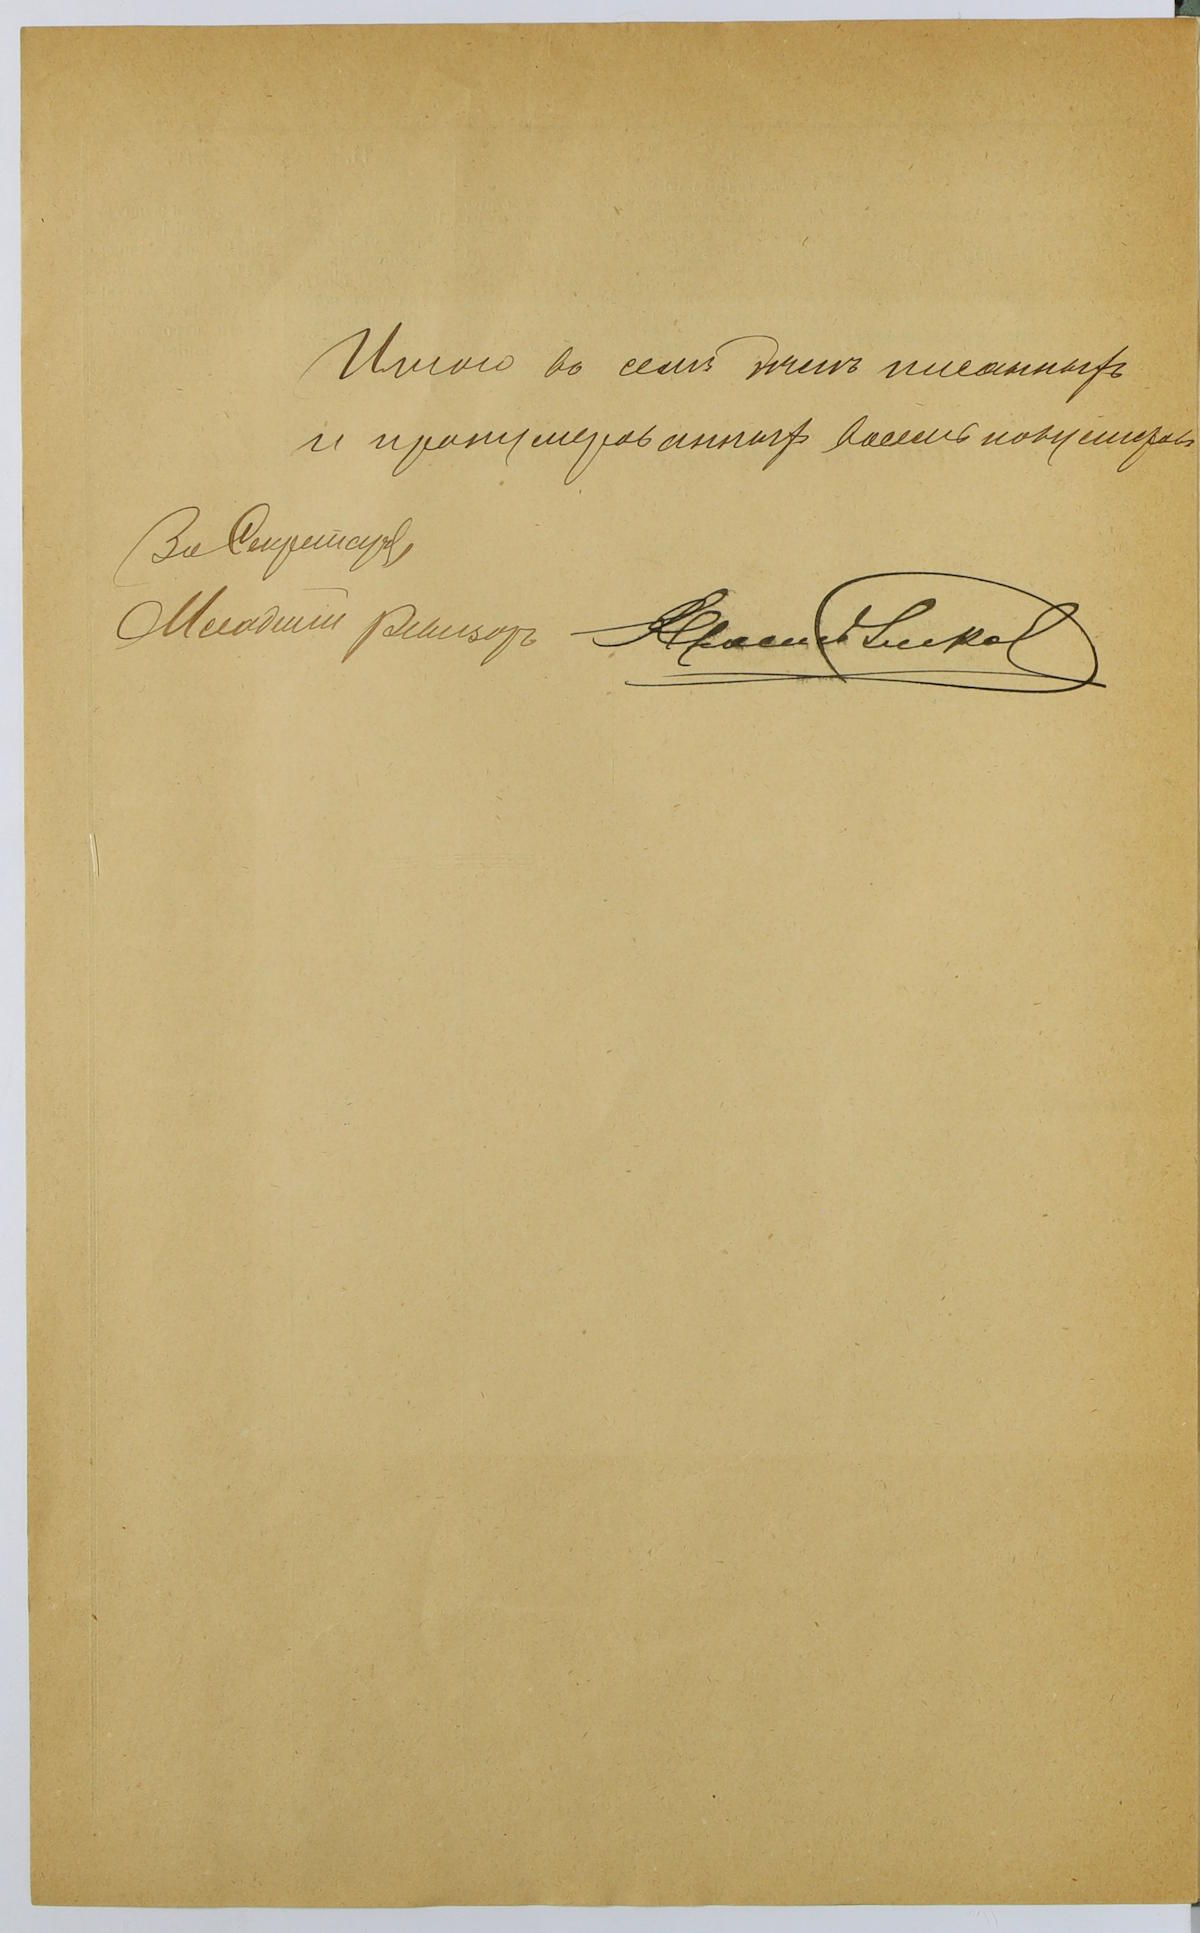 Итого въ семъ дѣлѣ писанныхъ
и пронумерованныхъ восемь полулистовъ
За Секретаря,
Младшій Ревизоръ